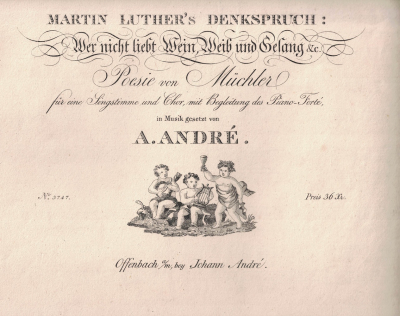 MARTIN LUTHER's DENKSPRUCH:
Wer nicht liebt Wein, Weib und Gesang &c.
Poesie von Müchler
für eine Singstimme und Chor, mit Begleitung des Piano-Forte,
in Musik gesetzt von
A. ANDRÉ.
Preis 36 Xr.
Offenbach a/m, bey Johann André.